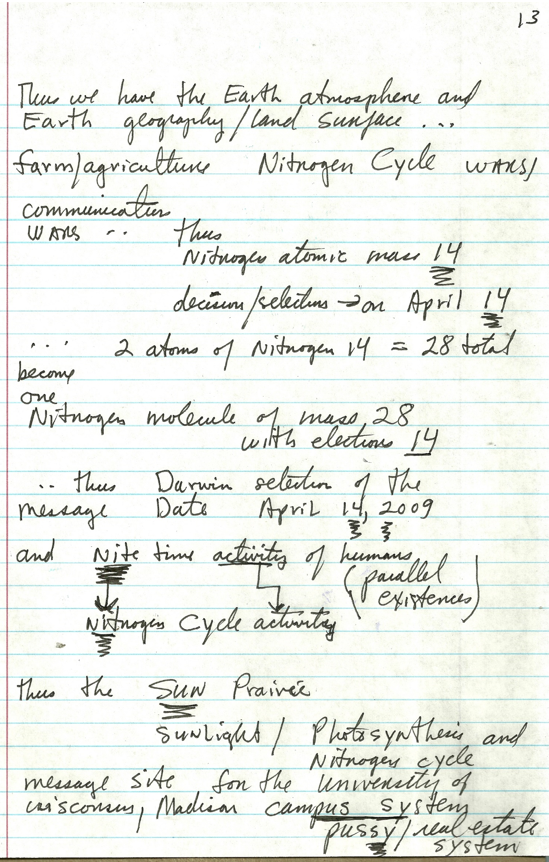 13
Thus we have the Earth atmosphere and
Earth geography/land surface ...
farm/agriculture Nitrogen Cycle WARS/
communication
WARS .. thus
Nitrogen atomic mass 14
decision/selection → on April 14
... 2 atoms of Nitrogen 14 = 28 total
become
one
Nitrogen molecule of mass 28
with electrons 14
.. thus Darwin selection of the
message Date April 14, 2009
and Nite time activity of humans
(parallel
existences)
Nitrogen Cycle activity
thus the SUN Prairie
SUNLight / Photosynthesis and
Nitrogen cycle
message site for the University of
Wisconsin, Madison campus system
pussy/real estate
system